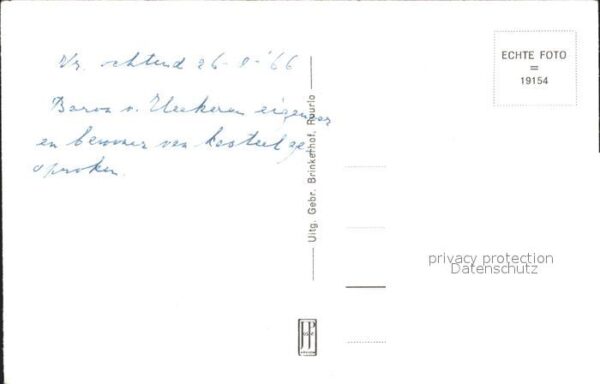 Vr. ochtend 26-8-'66
Baron v. Heeckeren eigenaar
en bewoner van kasteel ge-
sproken.
Uitg. Gebr. Brinkerhof, Ruurlo
ECHTE FOTO
=
19154
privacy protection
Datenschutz
JP